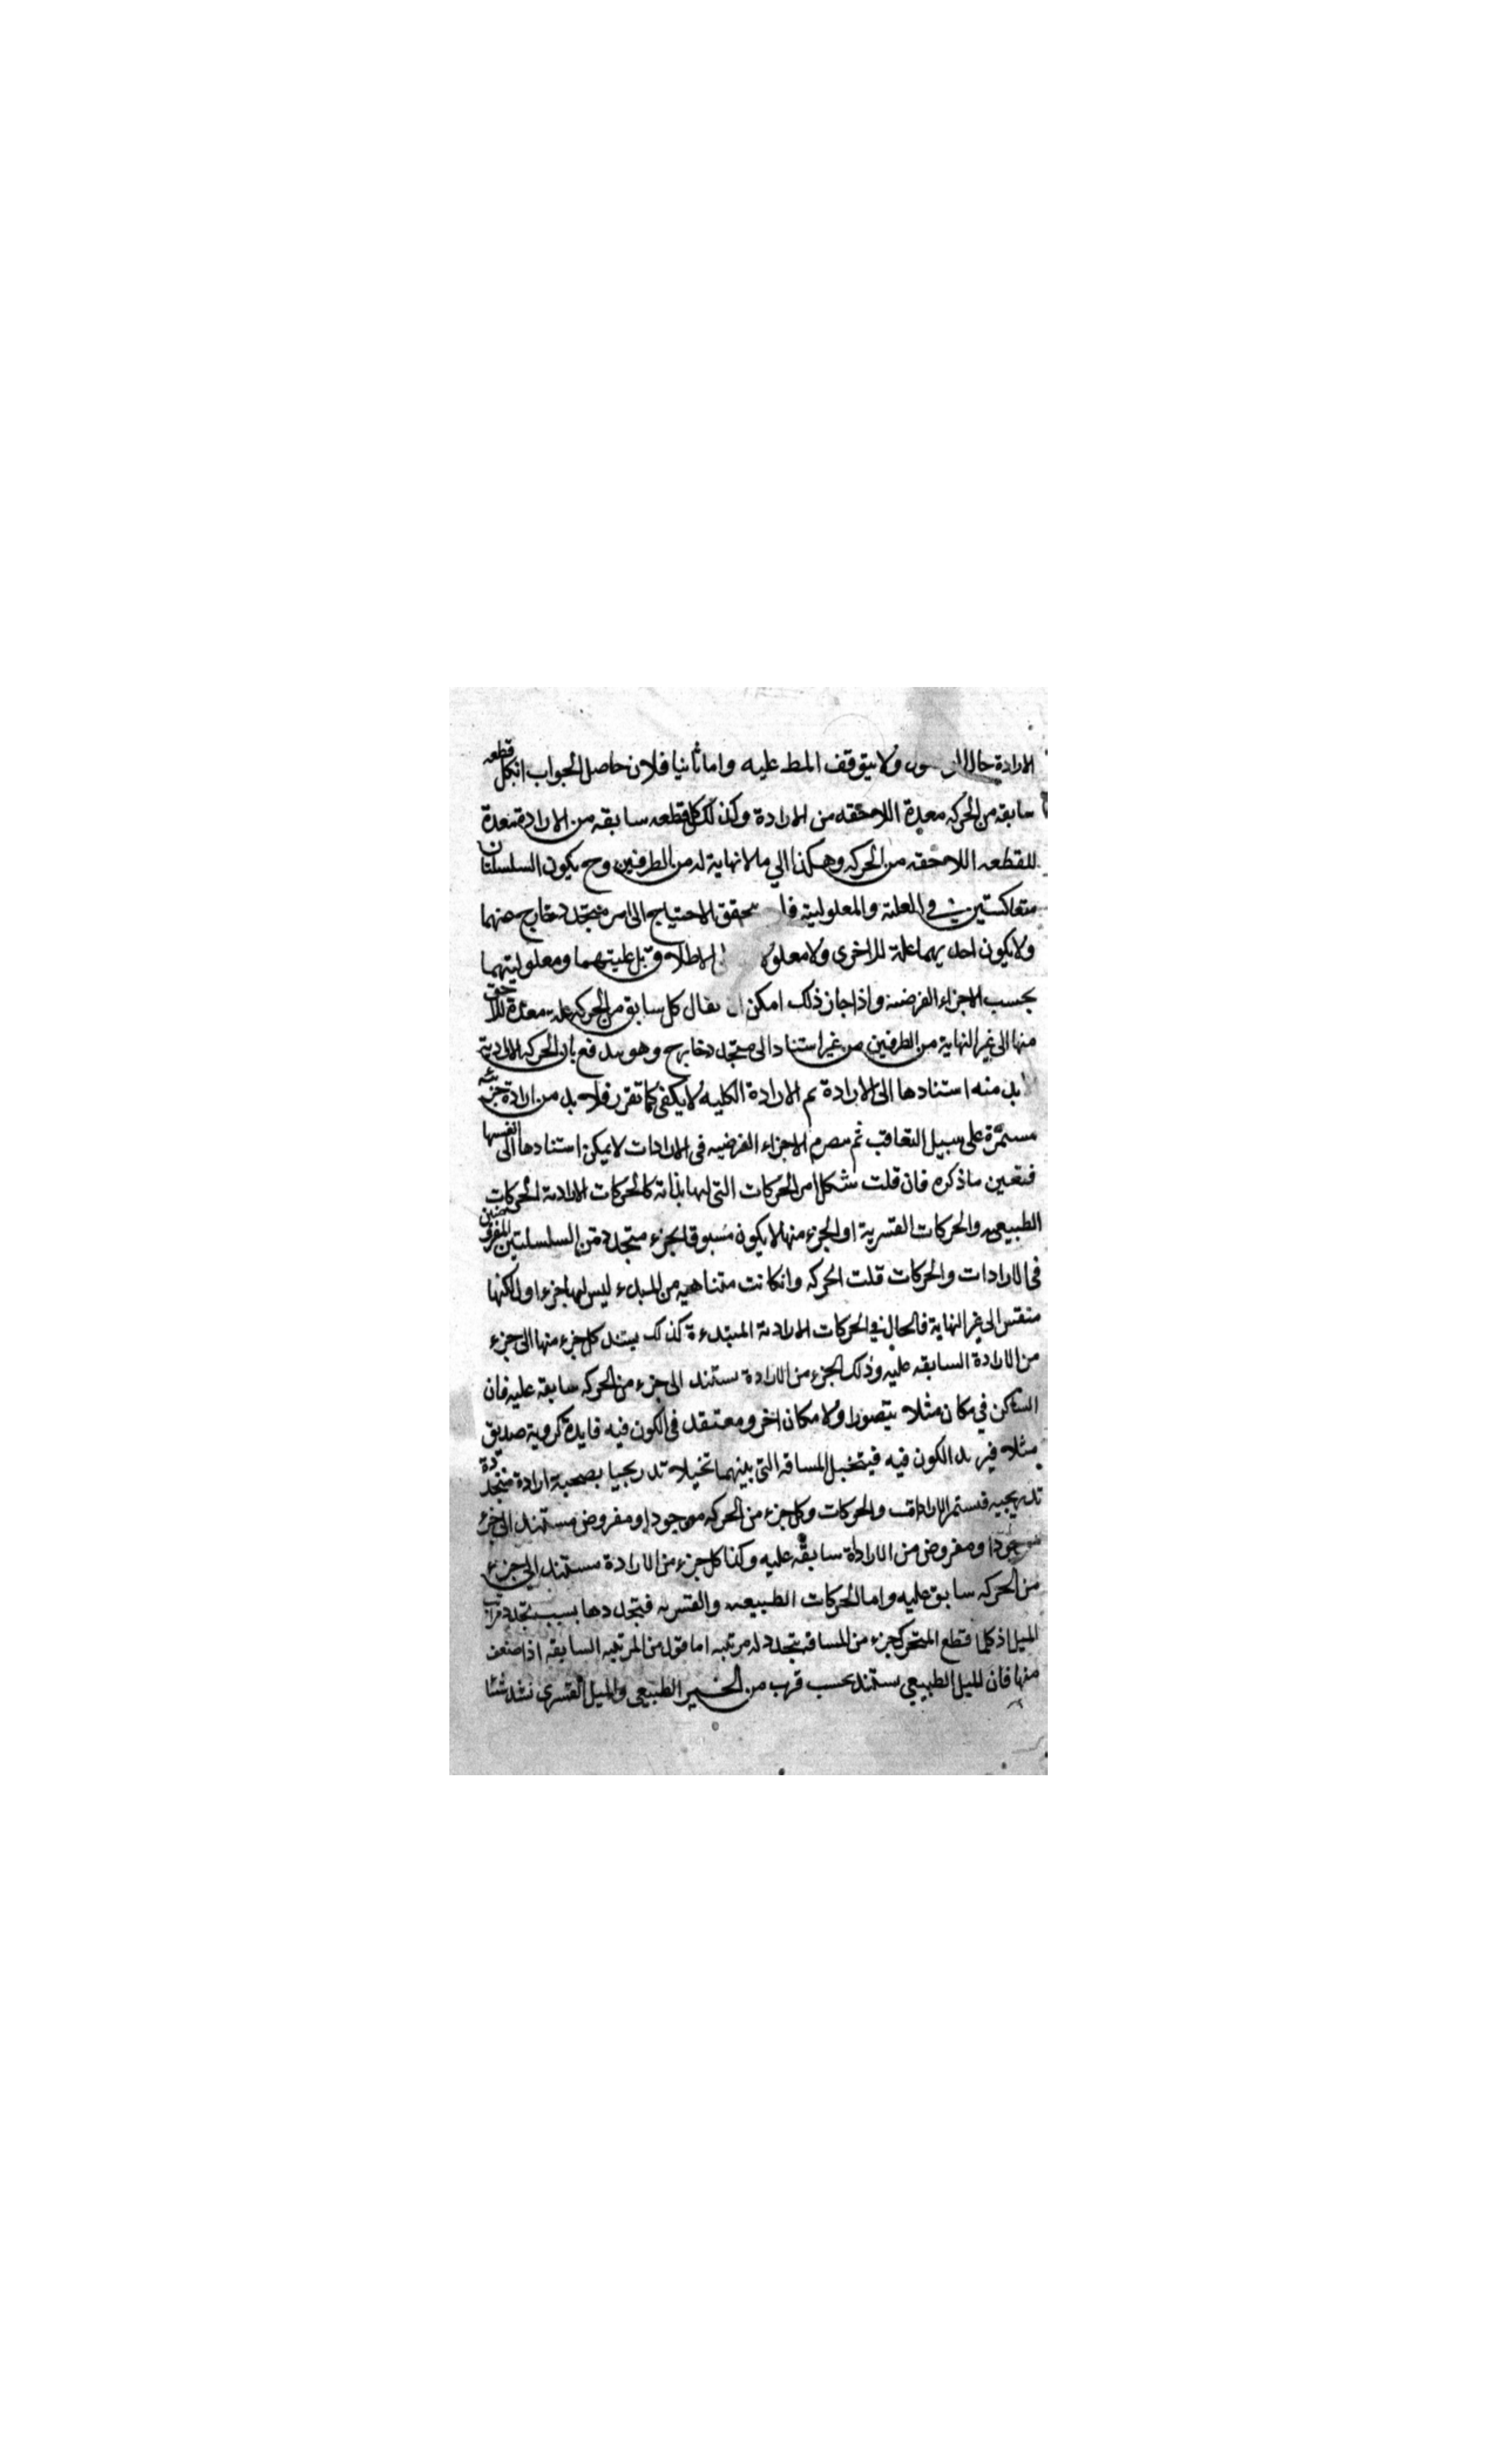 الارادية حال ولا يتوقف المط عليه واما ثانيا فلان حاصل الجواب ان كل قطعه
سابقه من الحركه معدة اللاحقه من الارادة وكذلك كل قطعه سابقه من الارادة معدة
للقطعه اللاحقه من الحركه وهكذا الي ما لا نهاية له من الطرفين وح يكون السلسلتان
متعاكستين في العلته والمعلوليته تحقق الاحتياج الى امر متجدد خارج عنهما
ولا يكون احديهما علة للاخرى ولا معلو الاطلاق بل عليتهما ومعلوليتهما
بحسب الاجزاء الفرضيه واذا جاز ذلك امكن ان يقال كل سابق من الحركه علة معدة للاحق
منها الى غير النهاية من الطرفين من غير استناد الى متجدد خارج وهو يندفع بان الحركه الارادية
لابد منه استنادها الى الارادة ثم الارادة الكليه لا يكفى كما تقرر فلا بد من ارادة جزئيه
مستمرة على سبيل التعاقب ثم تصرم الاجزاء الفرضيه فى الارادات لا يمكن استنادها الى انفسها
فتعين ما ذكره فان قلت تشكل امر الحركات التى لها بداية كالحركات الارادية الحركات
الطبيعيه والحركات القسرية اول جزء منها لا يكون مسبوقا بجزء متجدد من السلسلتين المفروضتين
فى الارادات والحركات قلت الحركه وان كانت متناهيه من المبدء ليس لها جزء اول لكنها
منقسم الى غير النهاية فالحال في الحركات الارادية المبتدءة كذلك يستند كل جزء منها الى جزء
من الارادة السابقه عليه وذلك الجزء من الارادة يستند الى جزء من الحركه سابقه عليه فان
الساكن في مكان مثلا يتصور اولا مكان اخر ومعتقد فى الكون فيه فايدة كروية صديق
مثلا فيريد الكون فيه فيتخيل المسافه التى بينهما تخيلا تدريجيا بصحبة ارادة متجددة
تدريجيه فيستمر الارادات والحركات وكل جزء من الحركه موجود او مفروض مستند الى جزء
موجود او مفروض من الارادة سابقه عليه وكذا كل جزء من الارادة مستند الى جزء
من الحركه سابق عليه واما الحركات الطبيعيه والقسريه فتجددها بسبب تجدد مراتب
الميل اذ كلما قطع المتحرك جزء من المسافه يتجدد له مرتبه اما اقوى من المرتبه السابقه اذا ضعف
منها فان الميل الطبيعي يشتد بحسب قرب من الحيز الطبيعى والميل القسرى